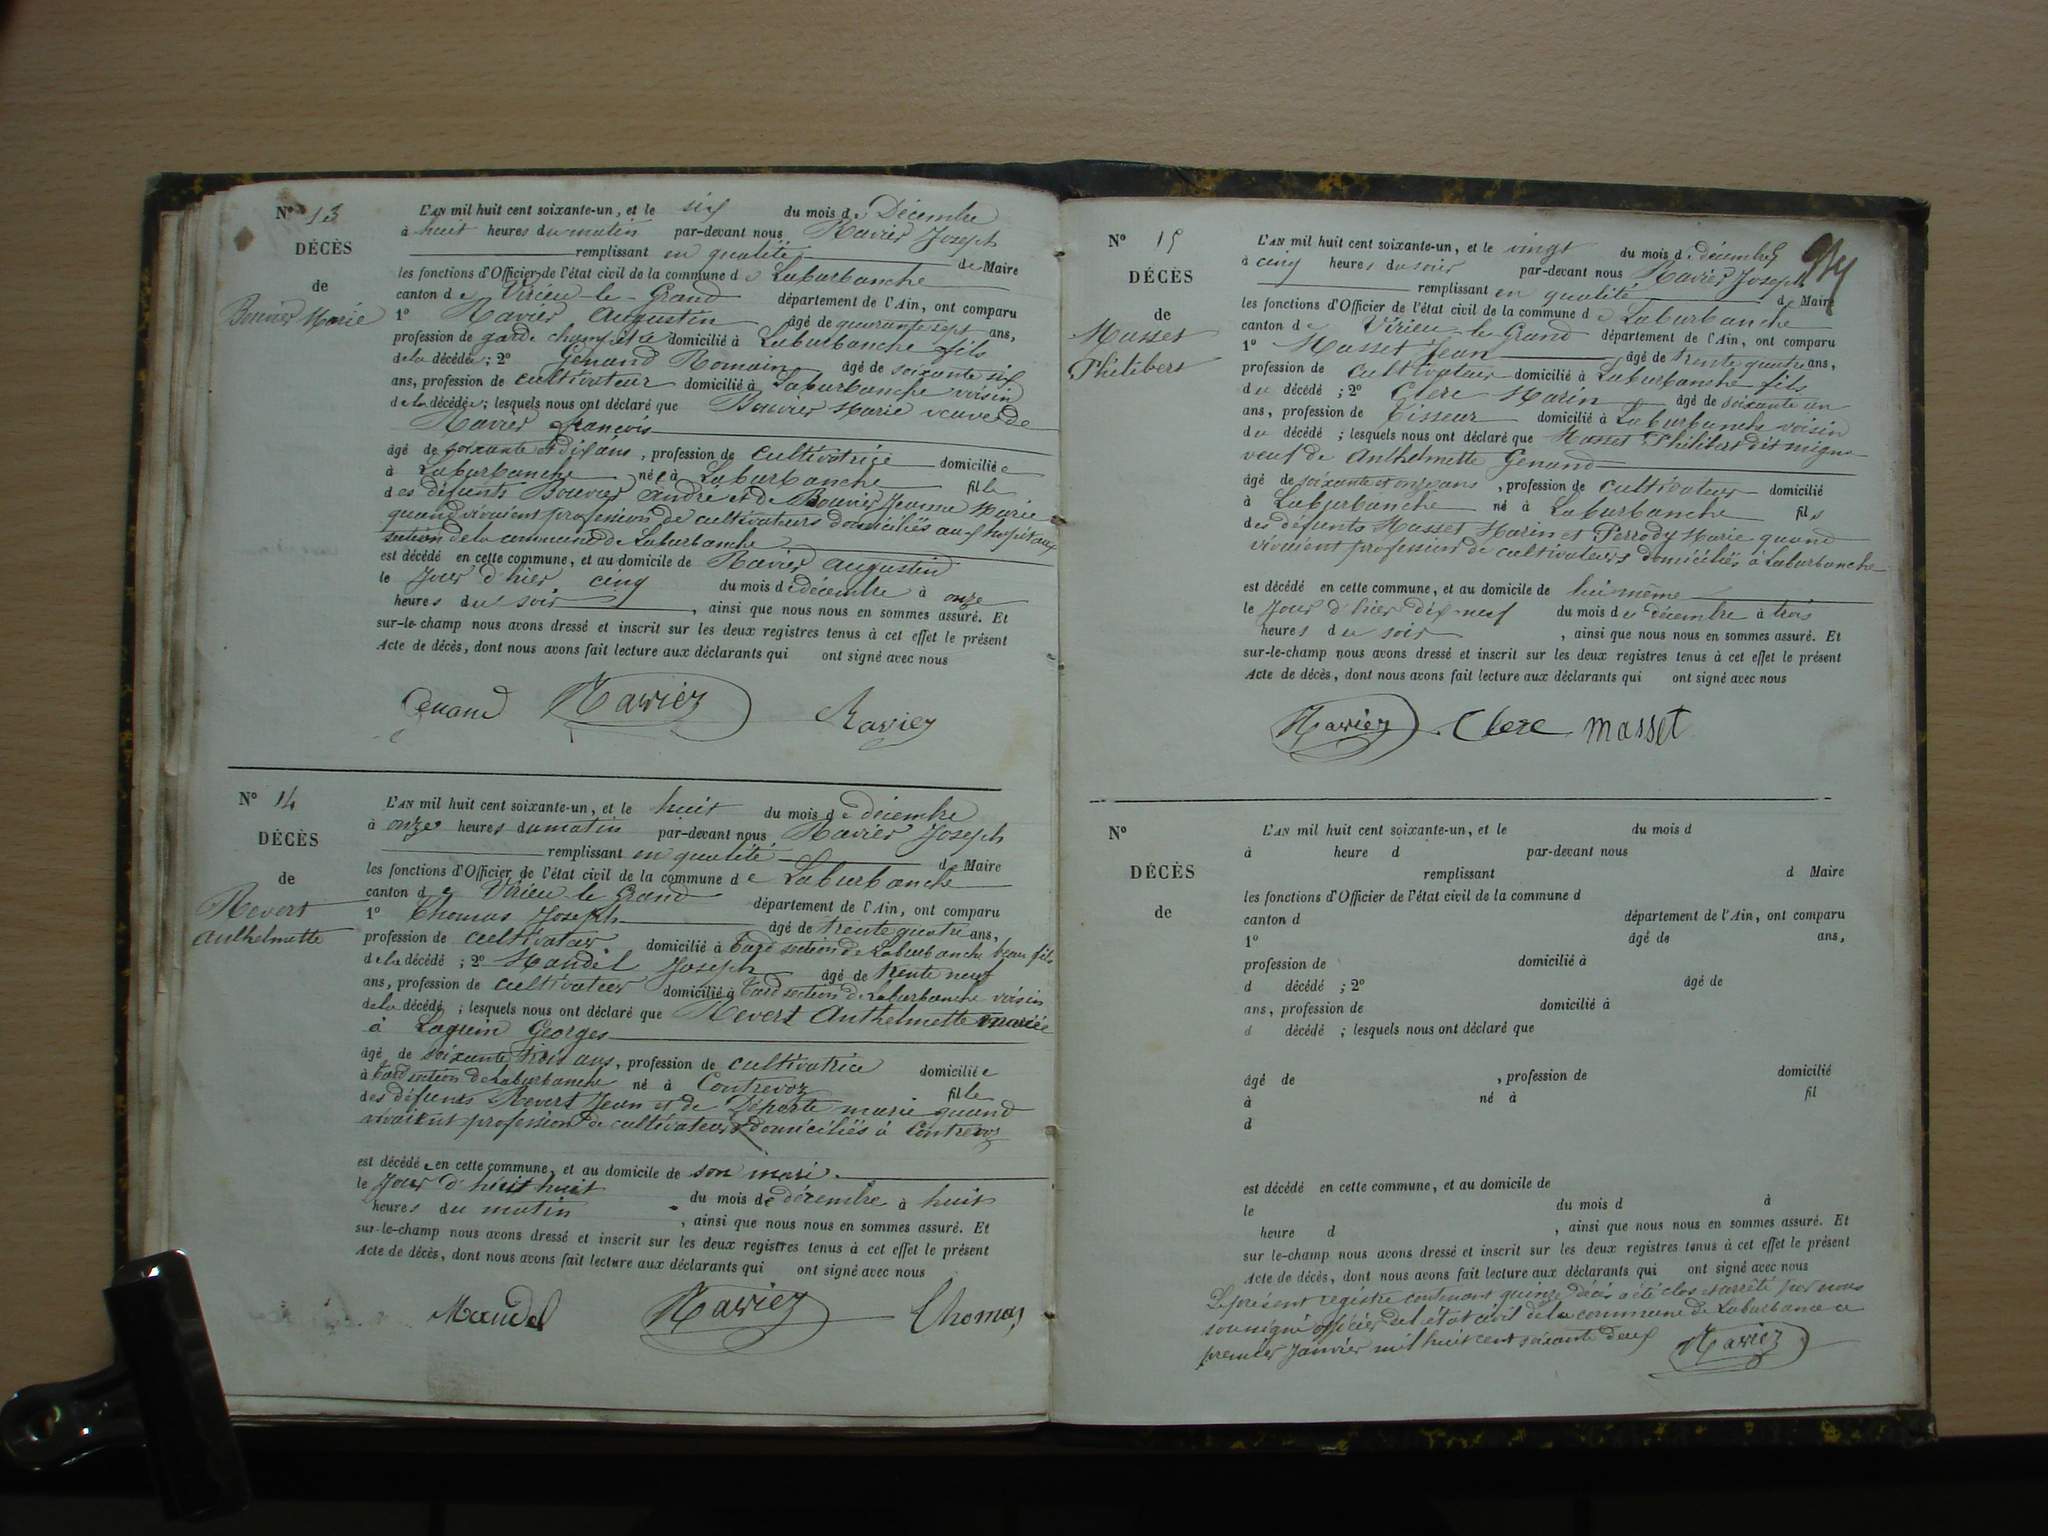 N° 13
DÉCÈS
de
Bouvier Marie
L'AN mil huit cent soixante-un, et le six du mois de Décembre
à huit heures du matin par-devant nous Ravier Joseph
remplissant en qualité de Maire
les fonctions d'Officier de l'état civil de la commune de Laburbanche
canton de Virieu-le-Grand département de l'Ain, ont comparu
1° Ravier Augustin âgé de quarante sept ans,
profession de garde champêtre domicilié à Laburbanche fils
de la décédée ; 2° Genand Romain âgé de soixante six
ans, profession de cultivateur domicilié à Laburbanche voisin
de la décédée ; lesquels nous ont déclaré que Bouvier Marie veuve de
Ravier françois
âgé de soixante et dix ans, profession de cultivatrice domiciliée
à Laburbanche née à Laburbanche fille
des défunts Bouvier andré et de Bouvier Jeanne Marie
quand vivaient profession de cultivateurs domiciliés aux hopitaux
section de la commune de Laburbanche
est décédé en cette commune, et au domicile de Ravier augustin
le Jour d'hier cinq du mois de décembre à onze
heures du soir, ainsi que nous nous en sommes assuré. Et
sur-le-champ nous avons dressé et inscrit sur les deux registres tenus à cet effet le présent
Acte de décès, dont nous avons fait lecture aux déclarants qui ont signé avec nous
Genand Ravier Ravier
N° 14
DÉCÈS
de
Revert
Anthelmette
L'AN mil huit cent soixante-un, et le huit du mois de décembre
à onze heures du matin par-devant nous Ravier Joseph
remplissant en qualité d Maire
les fonctions d'Officier de l'état civil de la commune de Laburbanche
canton de Virieu le Grand département de l'Ain, ont comparu
1° Thomas Joseph âgé de trente quatre ans,
profession de cultivateur domicilié à section de Laburbanche beau fils
de la décédé ; 2° Mandel Joseph âgé de trente neuf
ans, profession de cultivateur domicilié à section de Laburbanche voisin
de la décédé ; lesquels nous ont déclaré que Revert Anthelmette mariée
à Laguin Georges
âgé de soixante trois ans, profession de cultivatrice domiciliée
à section de Laburbanche né à Contrevoz fille
des défunts Revert Jean et de Déporte marie quand
vivaient profession de cultivateurs domiciliés à Contrevoz
est décédé en cette commune, et au domicile de son mari
le Jour d'huit huit du mois de décembre à huit
heures du matin, ainsi que nous nous en sommes assuré. Et
sur-le-champ nous avons dressé et inscrit sur les deux registres tenus à cet effet le présent
Acte de décès, dont nous avons fait lecture aux déclarants qui ont signé avec nous
Mandel Ravier Thomas
N° 15
DÉCÈS
de
Masset
Philibert
L'AN mil huit cent soixante-un, et le vingt du mois de décembre
à cinq heures du soir par-devant nous Ravier Joseph
remplissant en qualité d Maire
les fonctions d'Officier de l'état civil de la commune de Laburbanche
canton de Virieu le Grand département de l'Ain, ont comparu
1° Masset Jean âgé de trente quatre ans,
profession de cultivateur domicilié à Laburbanche fils
du décédé ; 2° Clerc Marin âgé de soixante un
ans, profession de tisseur domicilié à Laburbanche voisin
du décédé ; lesquels nous ont déclaré que Masset Philibert dit
veuf de Anthelmette Genand
âgé de soixante et onze ans, profession de cultivateur domicilié
à Laburbanche né à Laburbanche fils
des défunts Masset Marin et Perrody Marie quand
vivaient profession de cultivateurs domiciliés à Laburbanche
est décédé en cette commune, et au domicile de lui même
le Jour d'hier dix neuf du mois de décembre à trois
heures du soir, ainsi que nous nous en sommes assuré. Et
sur-le-champ nous avons dressé et inscrit sur les deux registres tenus à cet effet le présent
Acte de décès, dont nous avons fait lecture aux déclarants qui ont signé avec nous
Ravier Clerc masset
N°
DÉCÈS
de
L'AN mil huit cent soixante-un, et le du mois d
à heure d par-devant nous
remplissant d Maire
les fonctions d'Officier de l'état civil de la commune d
canton d département de l'Ain, ont comparu
1° âgé de ans,
profession de domicilié à
d décédé ; 2° âgé de
ans, profession de domicilié à
d décédé ; lesquels nous ont déclaré que
âgé de , profession de domicilié
à né à fil
d
est décédé en cette commune, et au domicile de
le du mois d à
heure d , ainsi que nous nous en sommes assuré. Et
sur le-champ nous avons dressé et inscrit sur les deux registres tenus à cet effet le présent
Acte de décès, dont nous avons fait lecture aux déclarants qui ont signé avec nous
Le présent registre contenant quinze décès a été clos et arrêté par nous
soussigné officier de l'état civil de la commune de Laburbanche ce
premier Janvier mil huit cent soixante deux Ravier